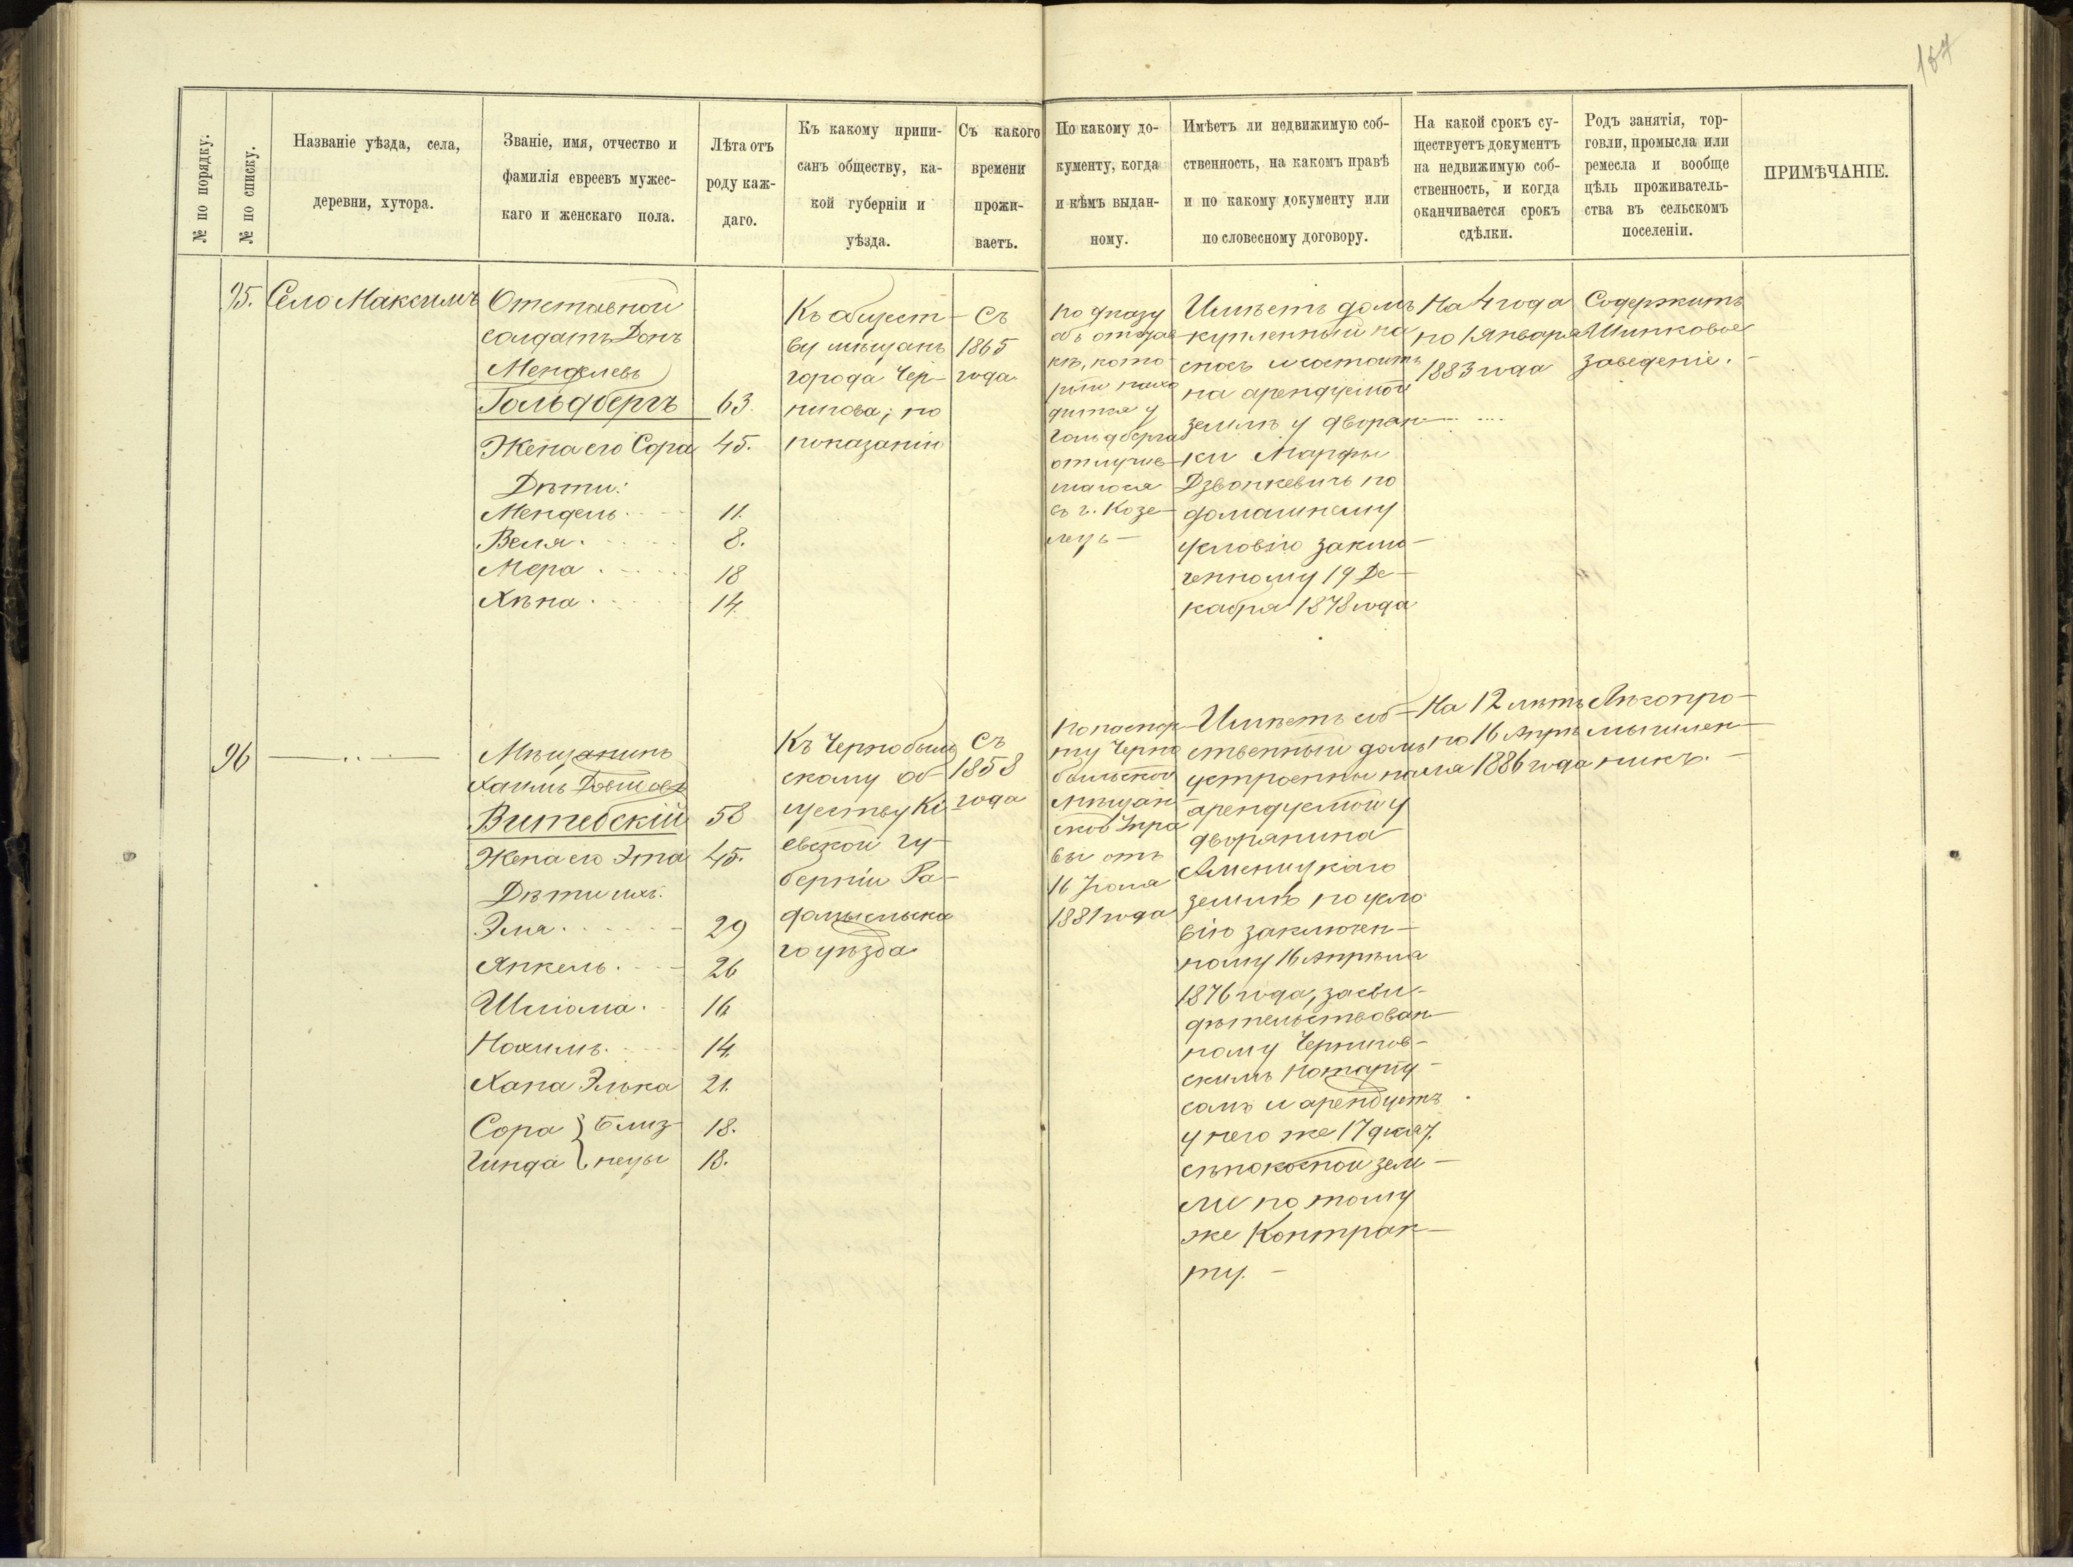 167
№ по порядку.
№ по списку.
Названіе уѣзда, села,
деревни, хутора.
Званіе, имя, отчество и
фамилія евреевъ мужес-
каго и женскаго пола.
Лѣта отъ
роду каж-
даго.
Къ какому припи-
санъ обществу, ка-
кой губерніи и
уѣзда.
Съ какого
времени
прожи-
ваетъ.
По какому до-
кументу, когда
и кѣмъ выдан-
ному.
Имѣетъ ли недвижимую соб-
ственность, на какомъ правѣ
и по какому документу или
по словесному договору.
На какой срокъ су-
ществуетъ документъ
на недвижимую соб-
ственность, и когда
оканчивается срокъ
сдѣлки.
Родъ занятія, тор-
говли, промысла или
ремесла и вообще
цѣль проживатель-
ства въ сельскомъ
поселеніи.
ПРИМѢЧАНІЕ.
95.
Село Максимъ
Отставной
солдатъ Донъ
Менделевъ
Гольдбергъ 63.
Жена его Сора 45.
Дѣти:
Мендель 11.
Веля 8.
Мера 18
Хѣна 14.
Къ общест-
ву мѣщанъ
города Чер-
нигова; по
показанію
Съ
1865
года
По указу
объ отстав-
кѣ, кото-
рый нахо
дится у
Гольдберга
отлучив-
шагося
въ г. Козе-
лець
Имѣетъ домъ
купленный на
сносъ и состоитъ
на арендуемой
землѣ у дворян-
ки Марфы
Дзвонкевичъ по
домашнему
условію заклю-
ченному 19 Де-
кабря 1878 года
На 4 года
по 1 Января
1883 года
Содержитъ
Шинковое
заведеніе.
96
Мѣщанинъ
Хаимъ Довтовъ
Витебскій 58
Жена его Эта 45.
Дѣти ихъ.
Эля 29
Янкель 26
Шліома 16
Нохимъ 14.
Хана Элька 21.
Сора } Близ- 18.
Гинда } нецы 18.
Къ Чернобыль
скому об-
ществу Кі
евской гу-
берніи Ра-
домысльска
го уѣзда
Съ
1858
года
По паспор-
ту Черно
быльской
Мѣщан-
ской Упра
вы отъ
16 Іюля
1881 года
Имѣетъ соб-
ственный домъ
устроенны на
арендуемой у
дворянина
земли по усло
вію заключен-
ному 16 Апрѣля
1876 года, засви-
дѣтельствован-
ному Чернигов-
скимъ Нотаріу-
сомъ и арендуетъ
у него же 17 десят.
сѣнокосной зем-
ли по тому
же Контрак-
ту.
На 12 лѣтъ
по 16 Апрѣ
ля 1886 года
Лѣсопро-
мышлен-
никъ.